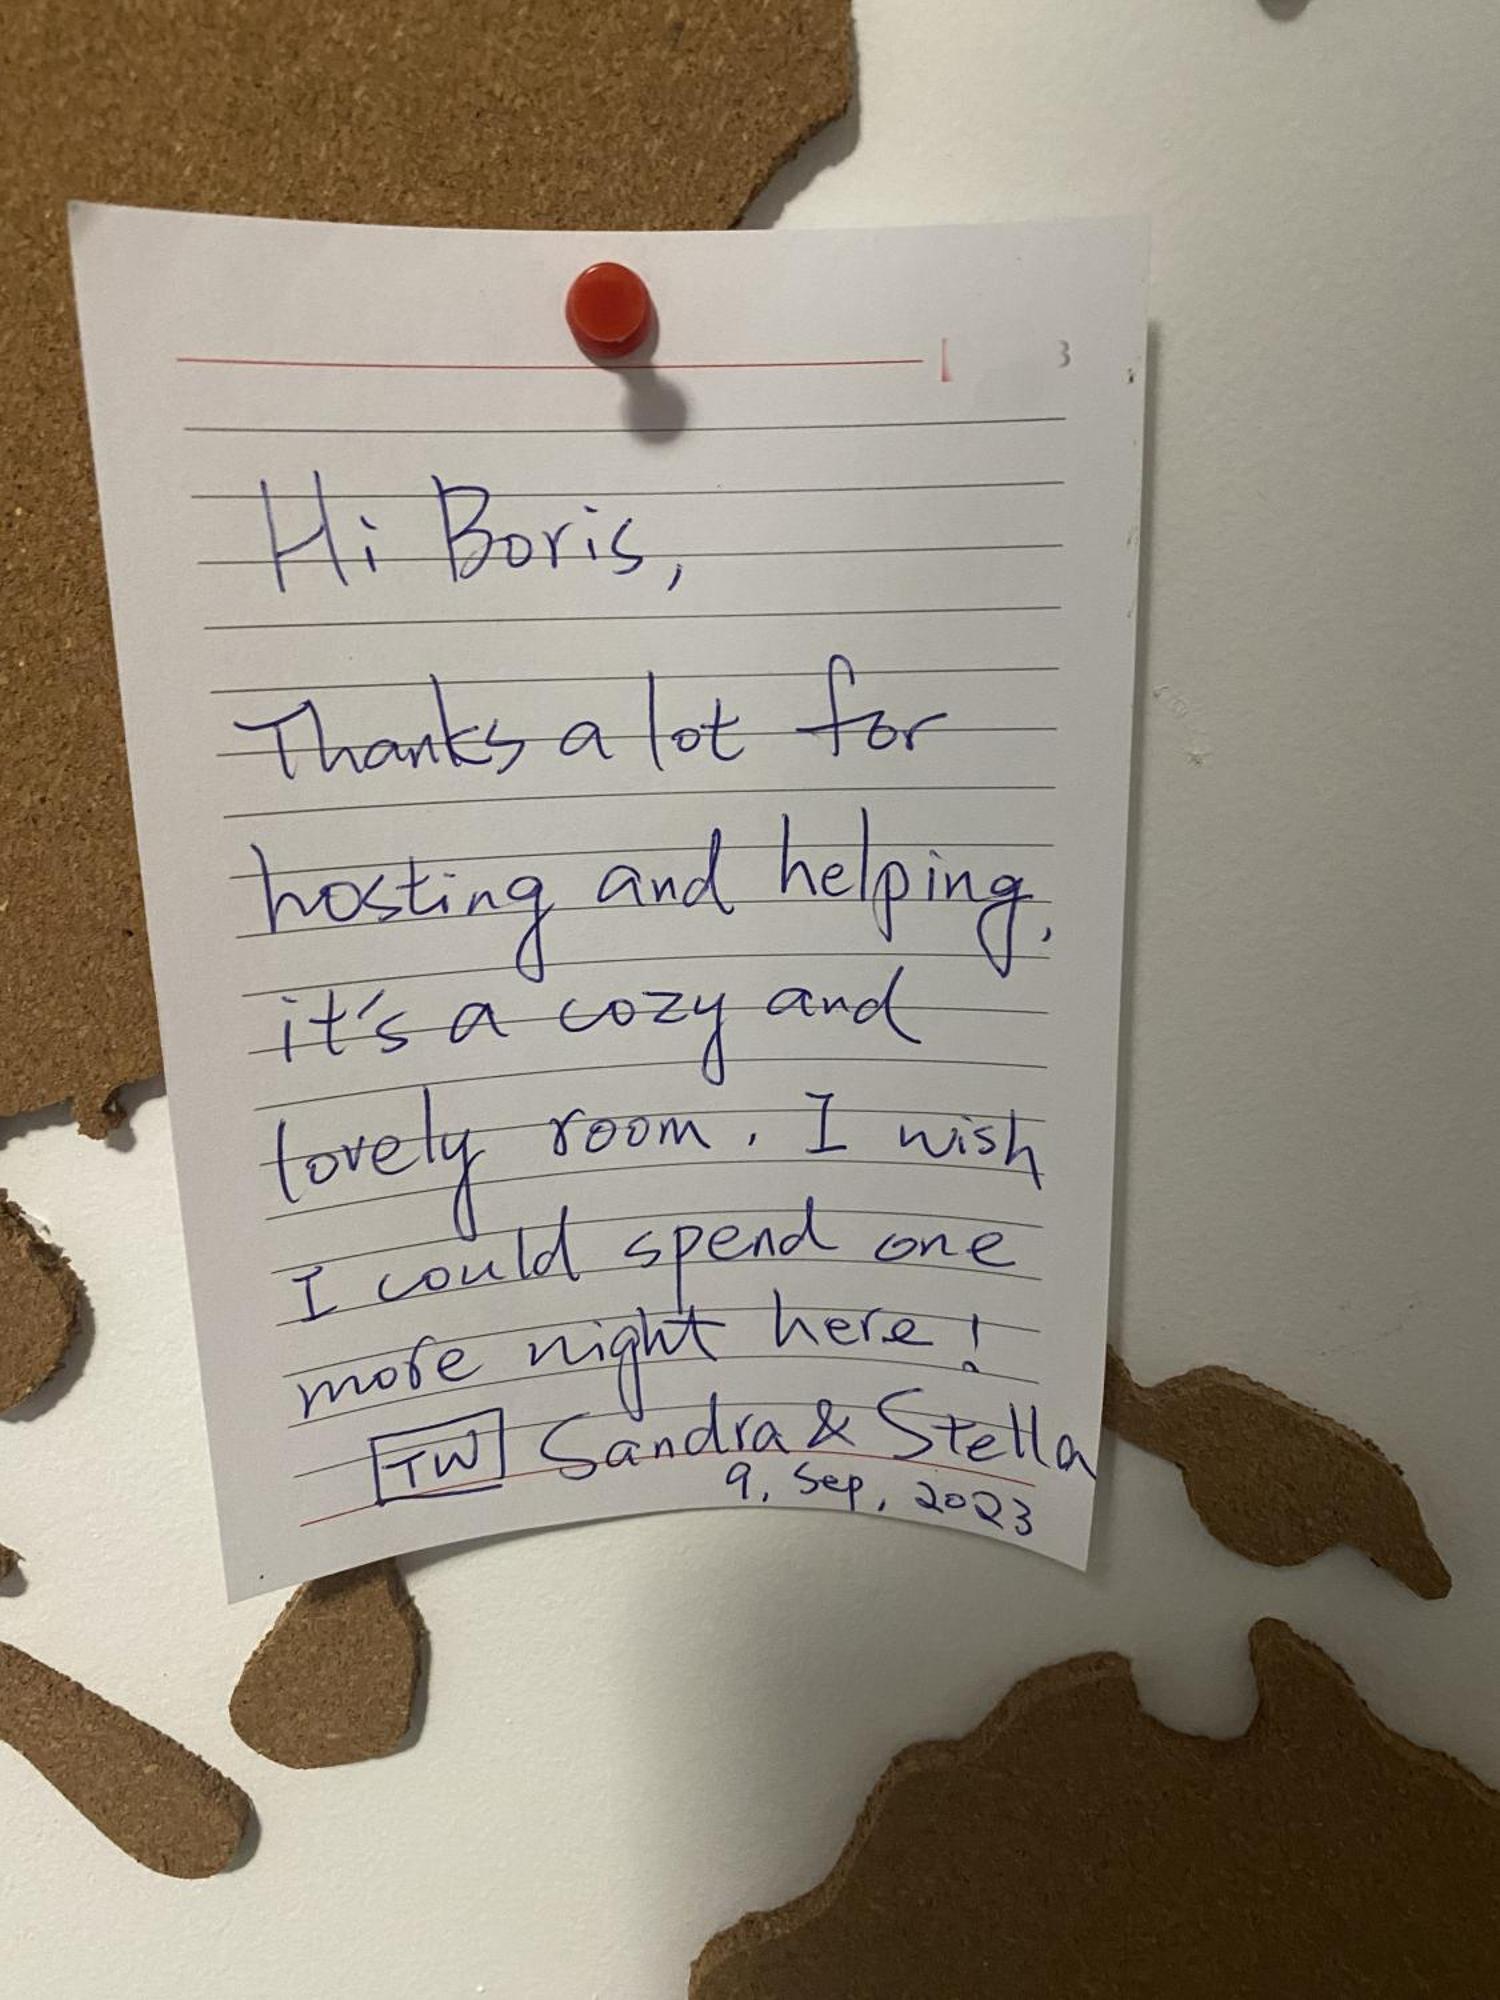 3
Hi Boris,
Thanks a lot for
hosting and helping,
it's a cozy and
lovely room. I wish
I could spend one
more night here!
TW Sandra & Stella
9, Sep, 2023